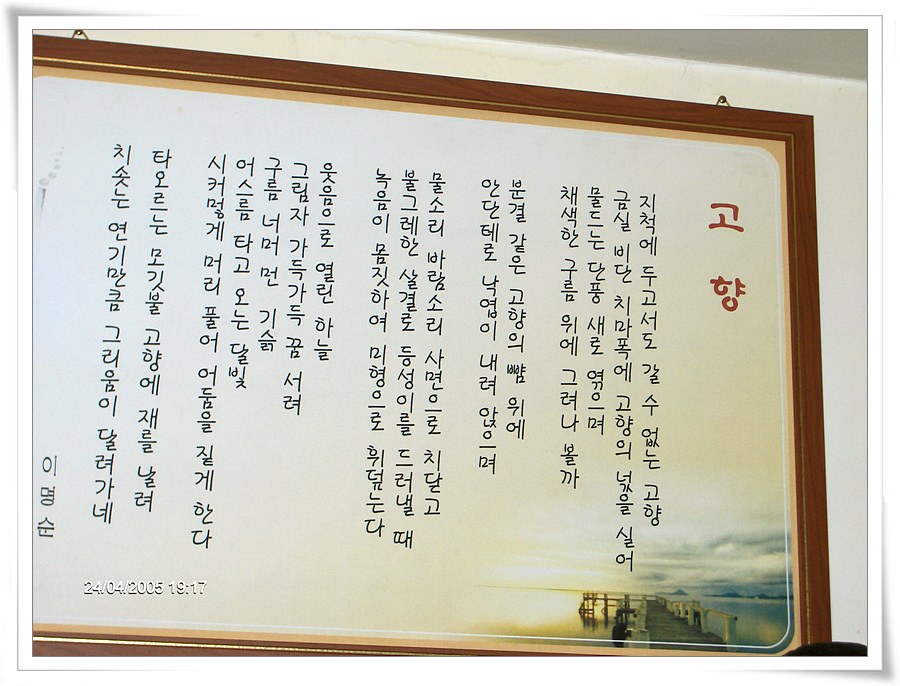 고향
지척에 두고서도 갈 수 없는 고향
금실 비단 치마폭에 고향의 넋을 실어
물드는 단풍 새로 엮으며
채색한 구름 위에 그려나 볼까
분결 같은 고향의 뺨 위에
안단테로 낙엽이 내려 앉으며
물소리 바람소리 사면으로 치닫고
불그레한 살결로 등성이를 드러낼 때
녹음이 몸짓하여 미형으로 휘덮는다
웃음으로 열린 하늘
그림자 가득가득 꿈 서려
구름 너머 먼 기슭
어스름 타고 오는 달빛
시커멓게 머리 풀어 어둠을 짙게 한다
타오르는 모깃불 고향에 재를 날려
치솟는 연기만큼 그리움이 달려가네
이명순
24/04/2005 19:17